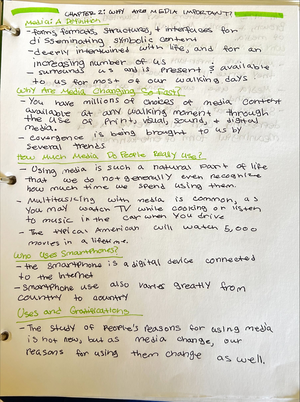 CHAPTER 2: WHY ARE MEDIA IMPORTANT?
Media: A Definition
- forms, formats, structures, + interfaces for
disseminating symbolic content
- deeply intertwined with life, and for an
increasing number of us
- surrounds us and is present & available
to us for most of our walking days
Why Are Media Changing So Fast?
- You have millions of choices of media content
available at any walking moment through
the use of print, visual, sound, + digital
media.
- covergence is being brought to us by
several trends
How Much Media Do People Really Use?
- Using media is such a natural part of life
that we do not generally even recognize
how much time we spend using them.
- Multitasking with media is common, as
you may watch TV while cooking or listen
to music in the car when you drive
- The typical American will watch 5,000
movies in a lifetime.
Who Uses Smartphones?
- the smartphone is a digital device connected
to the Internet
- Smartphone use also varies greatly from
country to country
Uses and Gratifications
- The study of people's reasons for using media
is not new, but as media change, our
reasons for using them change as well.